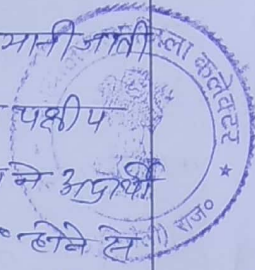 मानी जाती
पक्षीप
ने अप्रार्थी
होने से
ला कलेक्टर
राज०